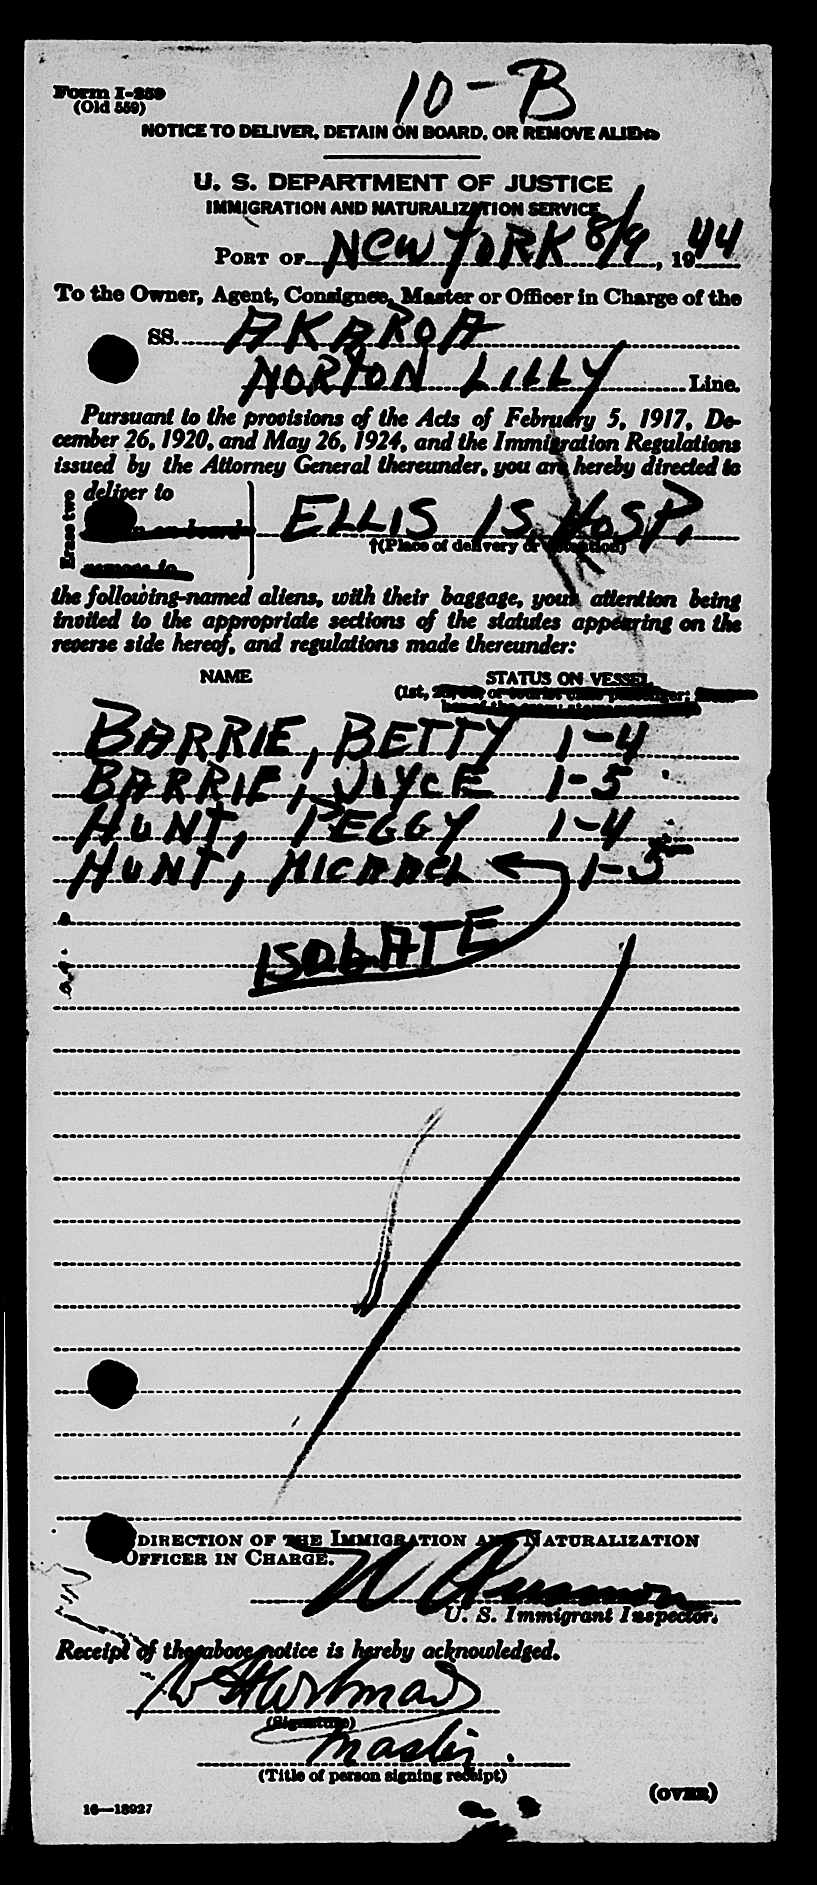 10-B
Form I-259
(Old 559)
NOTICE TO DELIVER, DETAIN ON BOARD, OR REMOVE ALIENS
U. S. DEPARTMENT OF JUSTICE
IMMIGRATION AND NATURALIZATION SERVICE
PORT OF NEW YORK 8/9, 1944
To the Owner, Agent, Consignee, Master or Officer in Charge of the
SS. AKAROA
NORTON LILLY Line.
Pursuant to the provisions of the Acts of February 5, 1917, De-
cember 26, 1920, and May 26, 1924, and the Immigration Regulations
issued by the Attorney General thereunder, you are hereby directed to
Erase two
deliver to
on board
remove to
ELLIS IS. HOSP.
†(Place of delivery or detention)
the following-named aliens, with their baggage, your attention being
invited to the appropriate sections of the statutes appearing on the
reverse side hereof, and regulations made thereunder:
NAME STATUS ON VESSEL
(1st, or tourist class passenger;
BARRIE, BETTY 1-4
BARRIE, JOYCE 1-5
HUNT, PEGGY 1-4
HUNT, MICHAEL 1-5
ISOLATE
DIRECTION OF THE IMMIGRATION AND NATURALIZATION
OFFICER IN CHARGE.
U. S. Immigrant Inspector.
Receipt of the above notice is hereby acknowledged.
(Signature)
Master.
(Title of person signing receipt)
(OVER)
16—18927